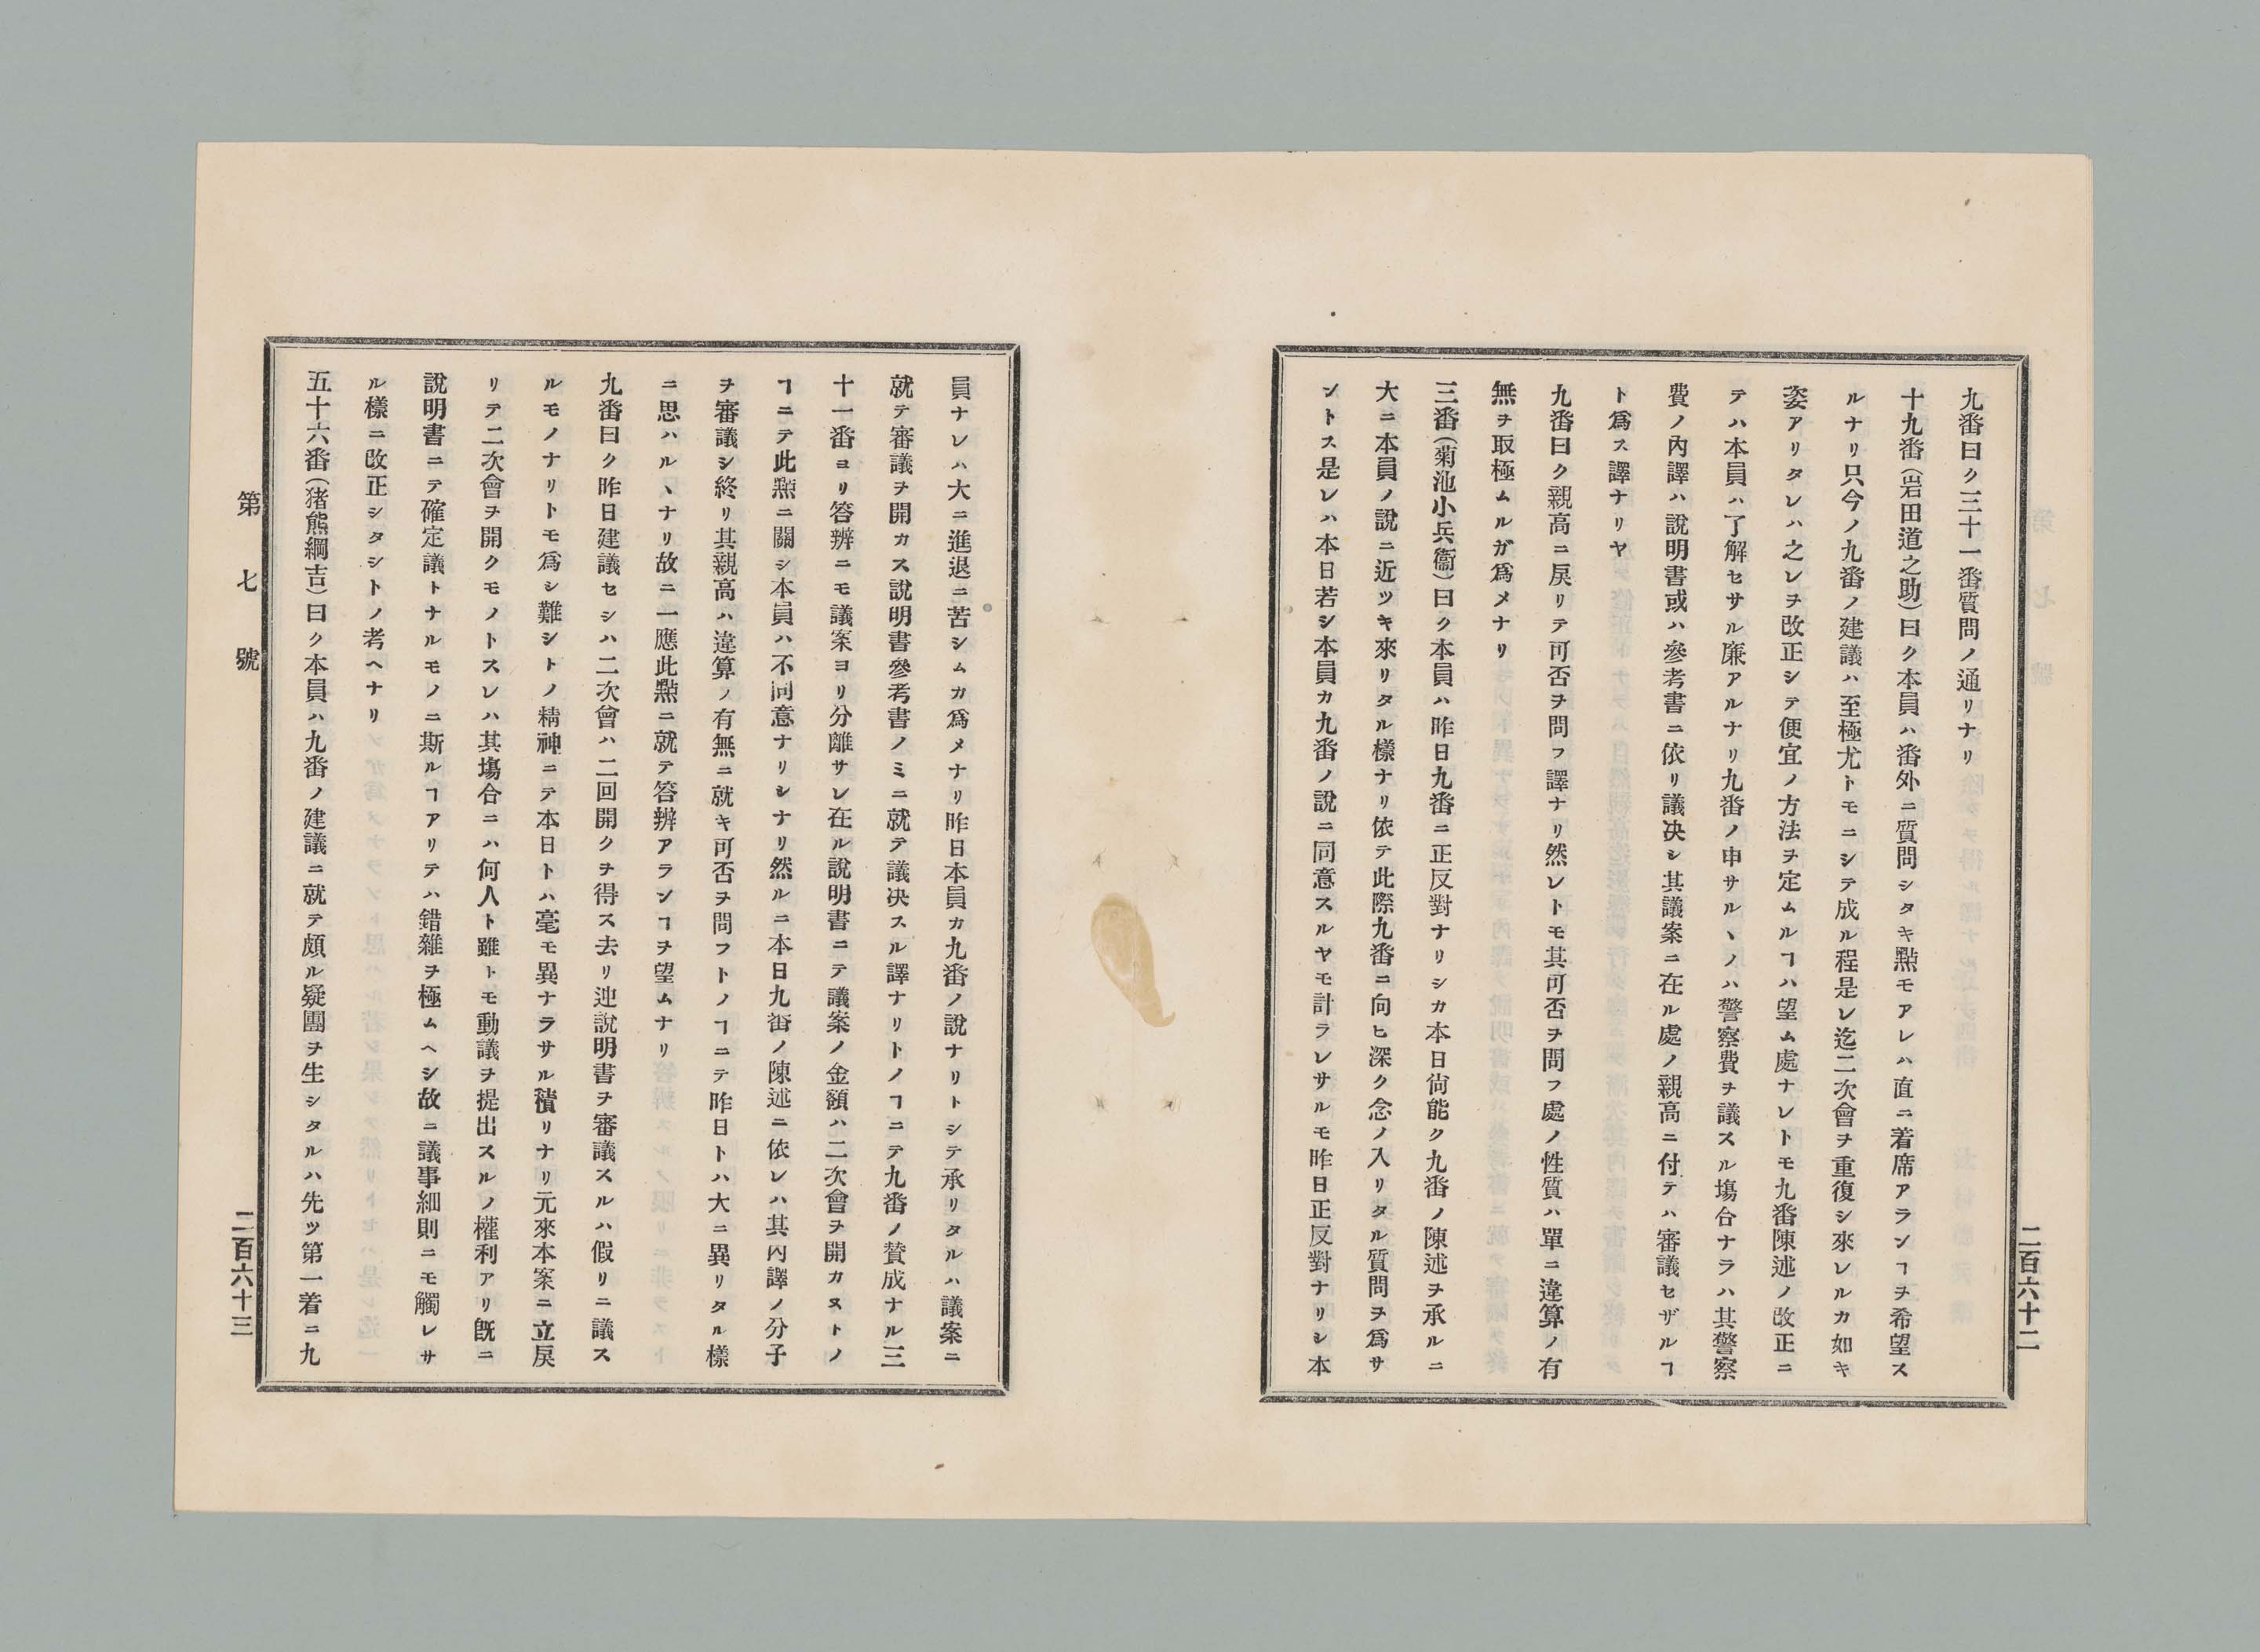 九番曰ク三十一番質問ノ通リナリ
十九番（岩田道之助）曰ク本員ハ番外ニ質問シタキ㸃モアレハ直ニ着席アランヿヲ希望ス
ルナリ只今ノ九番ノ建議ハ至極尤トモニシテ成ル程是レ迄二次會ヲ重復シ來レルカ如キ
姿アリタレハ之レヲ改正シテ便宜ノ方法ヲ定ムルヿハ望ム處ナレトモ九番陳述ノ改正ニ
テハ本員ハ了解セサル廉アルナリ九番ノ申サルヽノハ警察費ヲ議スル塲合ナラハ其警察
費ノ內譯ハ說明書或ハ參考書ニ依リ議决シ其議案ニ在ル處ノ親高ニ付テハ審議セザルヿ
ト爲ス譯ナリヤ
九番曰ク親高ニ戾リテ可否ヲ問フ譯ナリ然レトモ其可否ヲ問フ處ノ性質ハ單ニ違算ノ有
無ヲ取極ムルガ爲メナリ
三番（菊池小兵衞）曰ク本員ハ昨日九番ニ正反對ナリシカ本日尙能ク九番ノ陳述ヲ承ルニ
大ニ本員ノ說ニ近ツキ來リタル樣ナリ依テ此際九番ニ向ヒ深ク念ノ入リタル質問ヲ爲サ
ントス是レハ本日若シ本員カ九番ノ說ニ同意スルヤモ計ラレサルモ昨日正反對ナリシ本
二百六十二
員ナレハ大ニ進退ニ苦シムカ爲メナリ昨日本員カ九番ノ說ナリトシテ承リタルハ議案ニ
就テ審議ヲ開カス說明書參考書ノミニ就テ議决スル譯ナリトノヿニテ九番ノ賛成ナル三
十一番ヨリ答辨ニモ議案ヨリ分離サレ在ル說明書ニテ議案ノ金額ハ二次會ヲ開カヌトノ
ヿニテ此㸃ニ關シ本員ハ不同意ナリシナリ然ルニ本日九番ノ陳述ニ依レハ其內譯ノ分子
ヲ審議シ終リ其親高ハ違算ノ有無ニ就キ可否ヲ問フトノヿニテ昨日トハ大ニ異リタル樣
ニ思ハルヽナリ故ニ一應此㸃ニ就テ答辨アランヿヲ望ムナリ
九番曰ク昨日建議セシハ二次會ハ二回開クヲ得ス去リ迚說明書ヲ審議スルハ假リニ議ス
ルモノナリトモ爲シ難シトノ精神ニテ本日トハ毫モ異ナラサル積リナリ元來本案ニ立戾
リテ二次會ヲ開クモノトスレハ其塲合ニハ何人ト雖トモ動議ヲ提出スルノ權利アリ旣ニ
說明書ニテ確定議トナルモノニ斯ルヿアリテハ錯雜ヲ極ムヘシ故ニ議事細則ニモ觸レサ
ル樣ニ改正シタシトノ考ヘナリ
五十六番（猪熊綱吉）曰ク本員ハ九番ノ建議ニ就テ頗ル疑團ヲ生シタルハ先ツ第一着ニ九
第七號
二百六十三